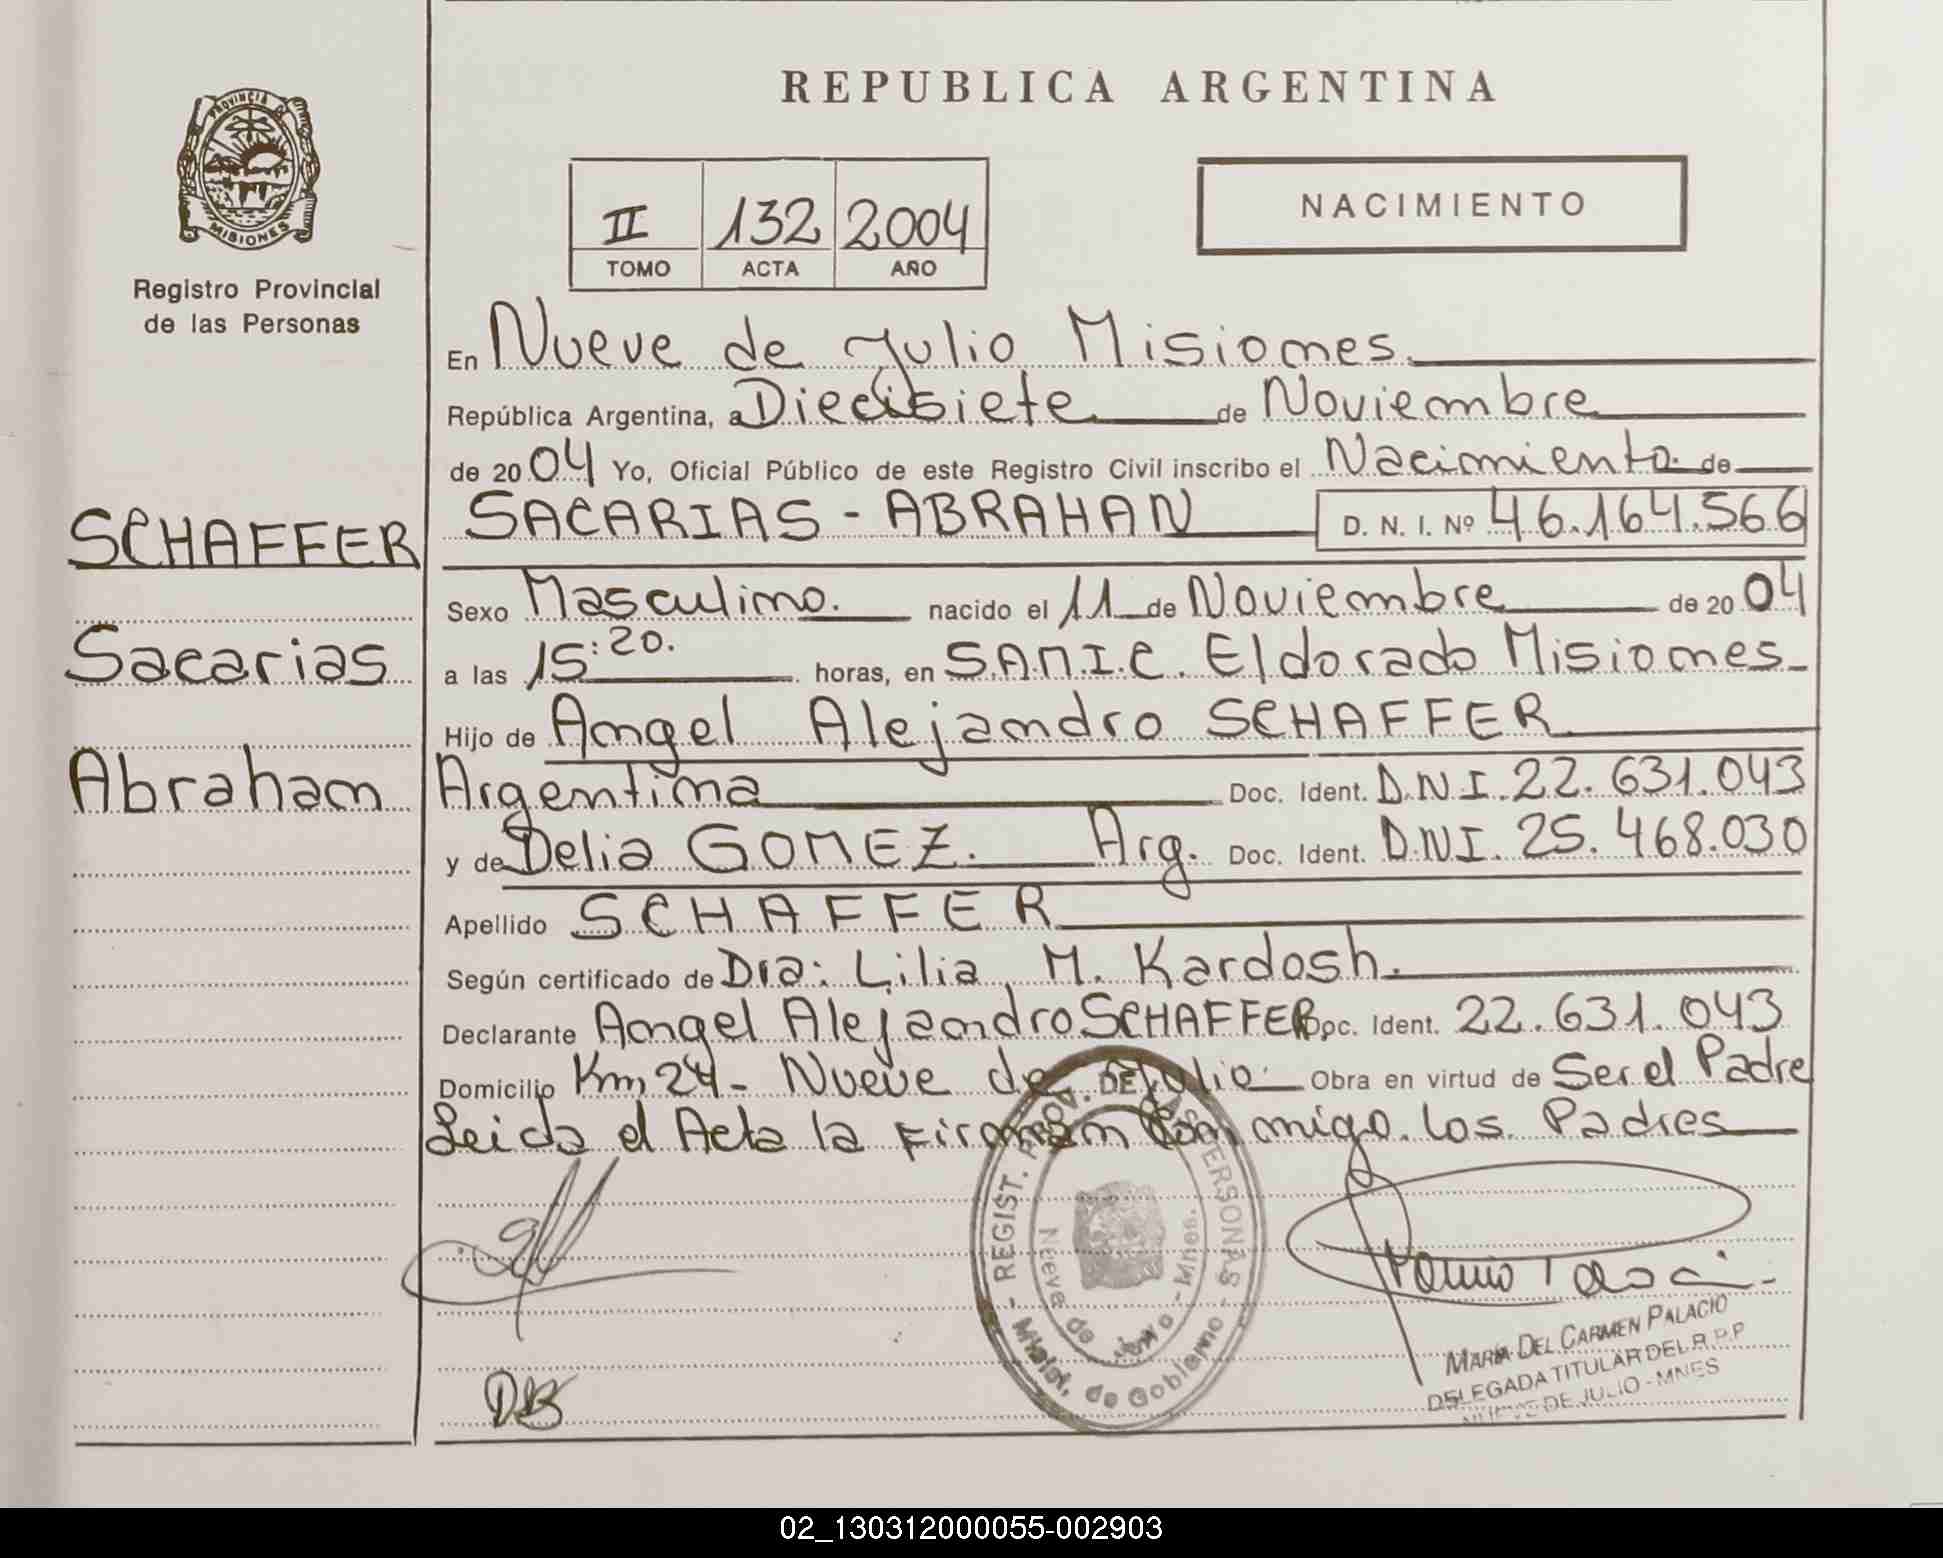 REPUBLICA ARGENTINA
PROVINCIA DE
MISIONES
Registro Provincial
de las Personas
II 132 2004
TOMO ACTA AÑO
NACIMIENTO
En Nueve de Julio Misiones.
República Argentina, a Diecisiete de Noviembre
de 2004 Yo, Oficial Público de este Registro Civil inscribo el Nacimiento de
SCHAFFER
Sacarias
Abraham
SACARIAS - ABRAHAN D. N. I. Nº 46.164.566
Sexo Masculino. nacido el 11 de Noviembre de 2004
a las 15:20. horas, en S.A.M.I.C. Eldorado Misiones
Hijo de Angel Alejandro SCHAFFER
Argentina Doc. Ident. D.N.I. 22.631.043
y de Delia GOMEZ. Arg. Doc. Ident. D.N.I. 25.468.030
Apellido SCHAFFER
Según certificado de Dra: Lilia M. Kardosh.
Declarante Angel Alejandro SCHAFFER Doc. Ident. 22.631.043
Domicilio Km 24 - Nueve de Julio. Obra en virtud de Ser el Padre
Leida el Acta la Firman Conmigo los Padres
- REGIST. PROV. DE LAS PERSONAS -
Minist. de Gobierno
Nueve de Julio - Mnes.
DB
MARIA DEL CARMEN PALACIO
DELEGADA TITULAR DEL R.P.P
NUEVE DE JULIO - MNES
02_130312000055-002903